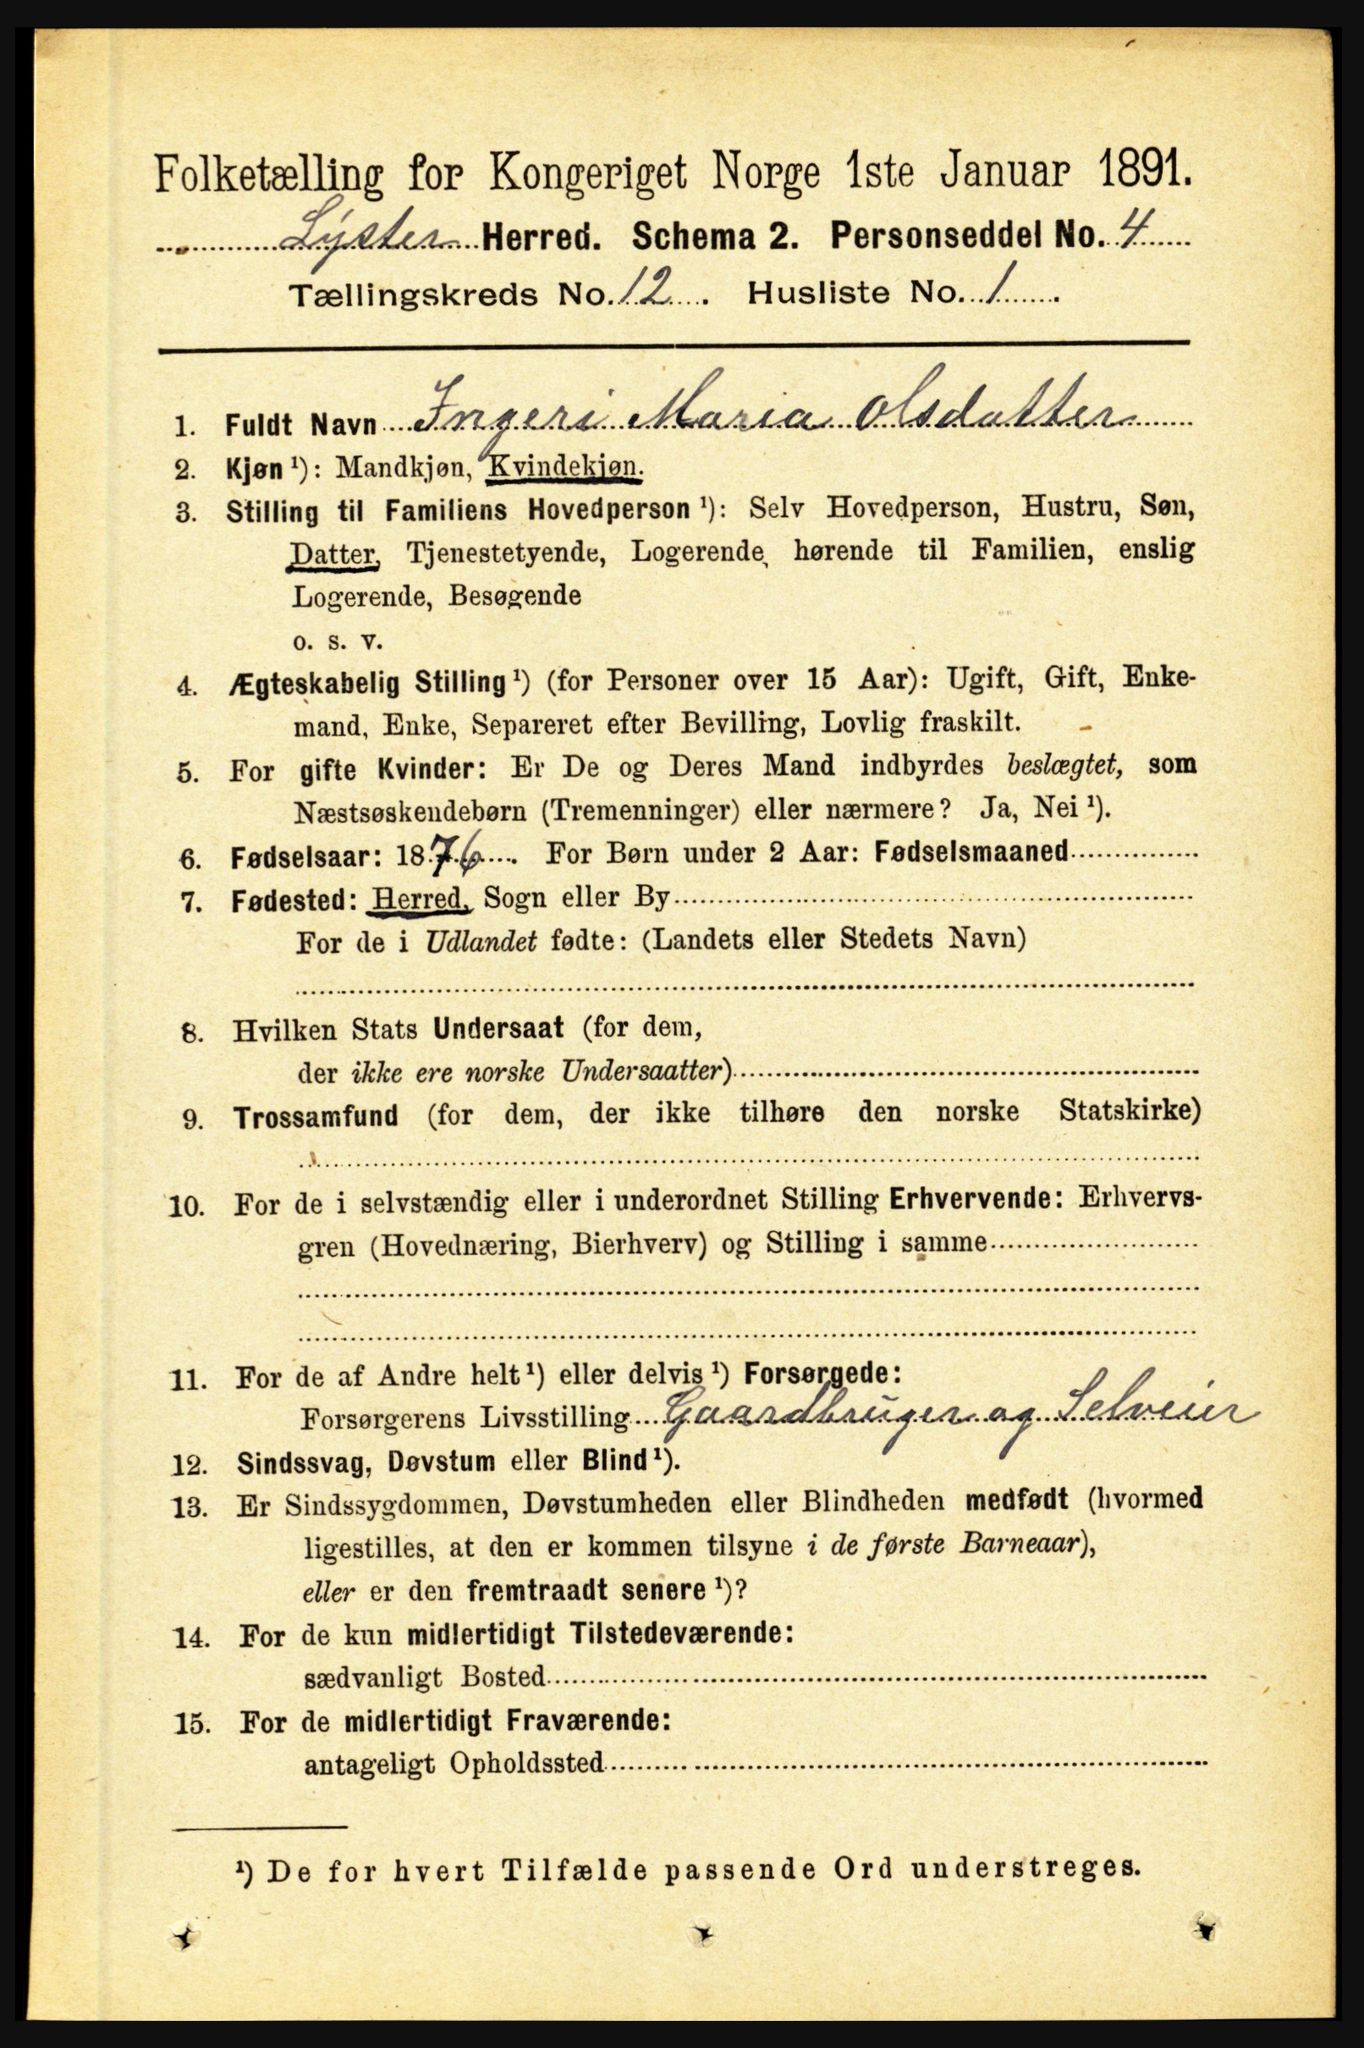 Folketælling for Kongeriget Norge 1ste Januar 1891.
Lyster Herred. Schema 2. Personseddel No. 4
Tællingskreds No. 12. Husliste No. 1.
1. Fuldt Navn Ingeri Maria Olsdatter
2. Kjøn ¹): Mandkjøn, Kvindekjøn.
3. Stilling til Familiens Hovedperson ¹): Selv Hovedperson, Hustru, Søn,
Datter, Tjenestetyende, Logerende hørende til Familien, enslig
Logerende, Besøgende
o. s. v.
4. Ægteskabelig Stilling ¹) (for Personer over 15 Aar): Ugift, Gift, Enke-
mand, Enke, Separeret efter Bevilling, Lovlig fraskilt.
5. For gifte Kvinder: Er De og Deres Mand indbyrdes beslægtet, som
Næstsøskendebørn (Tremenninger) eller nærmere? Ja, Nei ¹).
6. Fødselsaar: 1876. For Børn under 2 Aar: Fødselsmaaned
7. Fødested: Herred, Sogn eller By
For de i Udlandet fødte: (Landets eller Stedets Navn)
8. Hvilken Stats Undersaat (for dem,
der ikke ere norske Undersaatter)
9. Trossamfund (for dem, der ikke tilhøre den norske Statskirke)
10. For de i selvstændig eller i underordnet Stilling Erhvervende: Erhvervs-
gren (Hovednæring, Bierhverv) og Stilling i samme
11. For de af Andre helt ¹) eller delvis ¹) Forsørgede:
Forsørgerens Livsstilling Gaardbruger og Selveier
12. Sindssvag, Døvstum eller Blind ¹).
13. Er Sindssygdommen, Døvstumheden eller Blindheden medfødt (hvormed
ligestilles, at den er kommen tilsyne i de første Barneaar),
eller er den fremtraadt senere ¹)?
14. For de kun midlertidigt Tilstedeværende:
sædvanligt Bosted
15. For de midlertidigt Fraværende:
antageligt Opholdssted
¹) De for hvert Tilfælde passende Ord understreges.